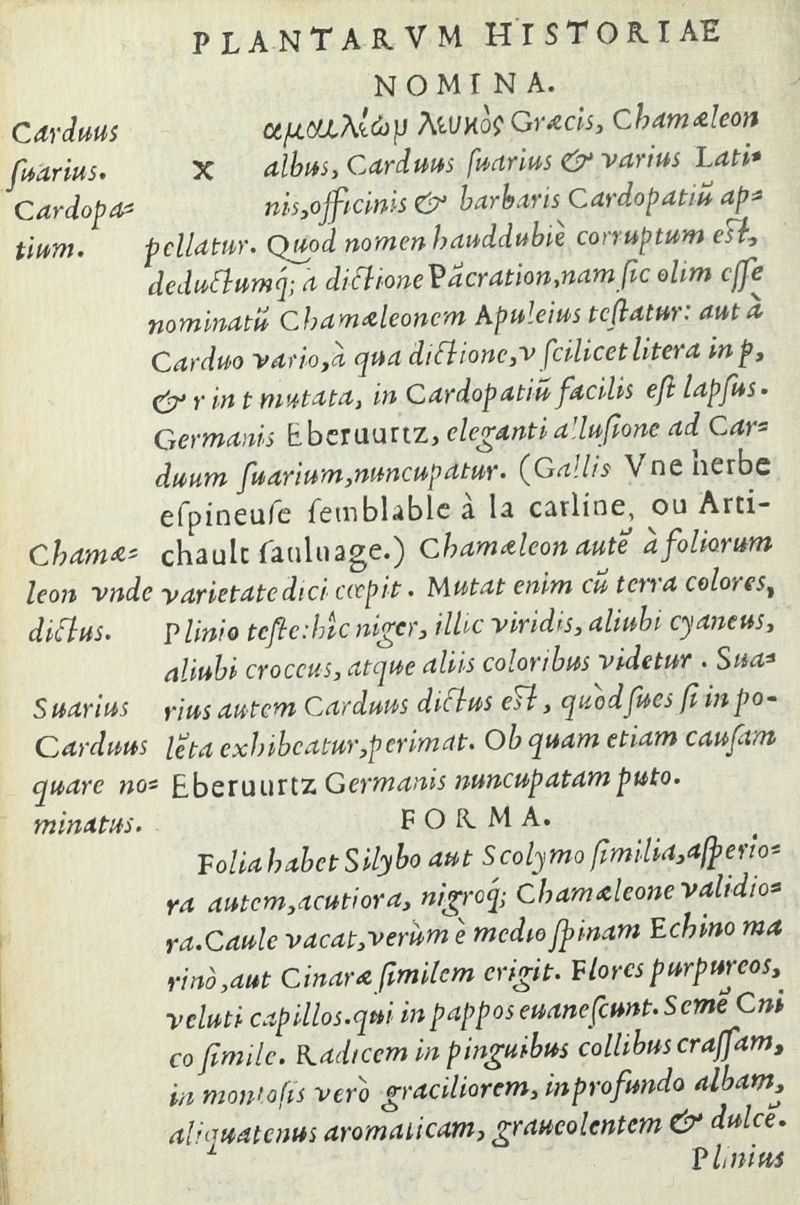 PLANTARVM HISTORIAE
NOMINA.
Carduus
ſuarius.
Cardopa=
tium.
X αμαιλέωμ λευκὸς Græcis, Chamæleon
albus, Carduus ſuarius & varius Lati=
nis, officinis & barbaris Cardopatiũ ap=
pellatur. Quod nomen hauddubiè corruptum eſt,
deductumq́; à dictione Pācration, nam ſic olim eſſe
nominatũ Chamæleonem Apuleius teſtatur: aut à
Carduo vario, à qua dictione, v ſcilicet litera in p,
& r in t mutata, in Cardopatiũ facilis eſt lapſus.
Germanis Eberuurtz, eleganti alluſione ad Car=
duum ſuarium, nuncupatur. (Gallis Vne herbe
eſpineuſe ſemblable à la carline, ou Arti-
chault ſauluage.) Chamæleon autẽ à foliorum
Chamæ=
leon vnde
dictus.
varietate dici cœpit. Mutat enim cũ terra colores,
Plinio teſte: hîc niger, illic viridis, aliubi cyaneus,
aliubi croceus, atque aliis coloribus videtur. Sua=
Suarius
Carduus
quare no=
minatus.
rius autem Carduus dictus eſt, quòd ſues ſi in po-
lẽta exhibeatur, perimat. Ob quam etiam cauſam
Eberuurtz Germanis nuncupatam puto.
FORMA.
Folia habet Silybo aut Scolymo ſimilia, aſperio=
ra autem, acutiora, nigroq́; Chamæleone validio=
ra. Caule vacat, verùm è medio ſpinam Echino ma
rinò, aut Cinaræ ſimilem erigit. Flores purpureos,
veluti capillos. qui in pappos euaneſcunt. Semẽ Cni
co ſimile. Radicem in pinguibus collibus craſſam,
in montoſis verò graciliorem, in profundo albam,
aliquatenus aromaticam, graueolentem & dulcẽ.
Plinius